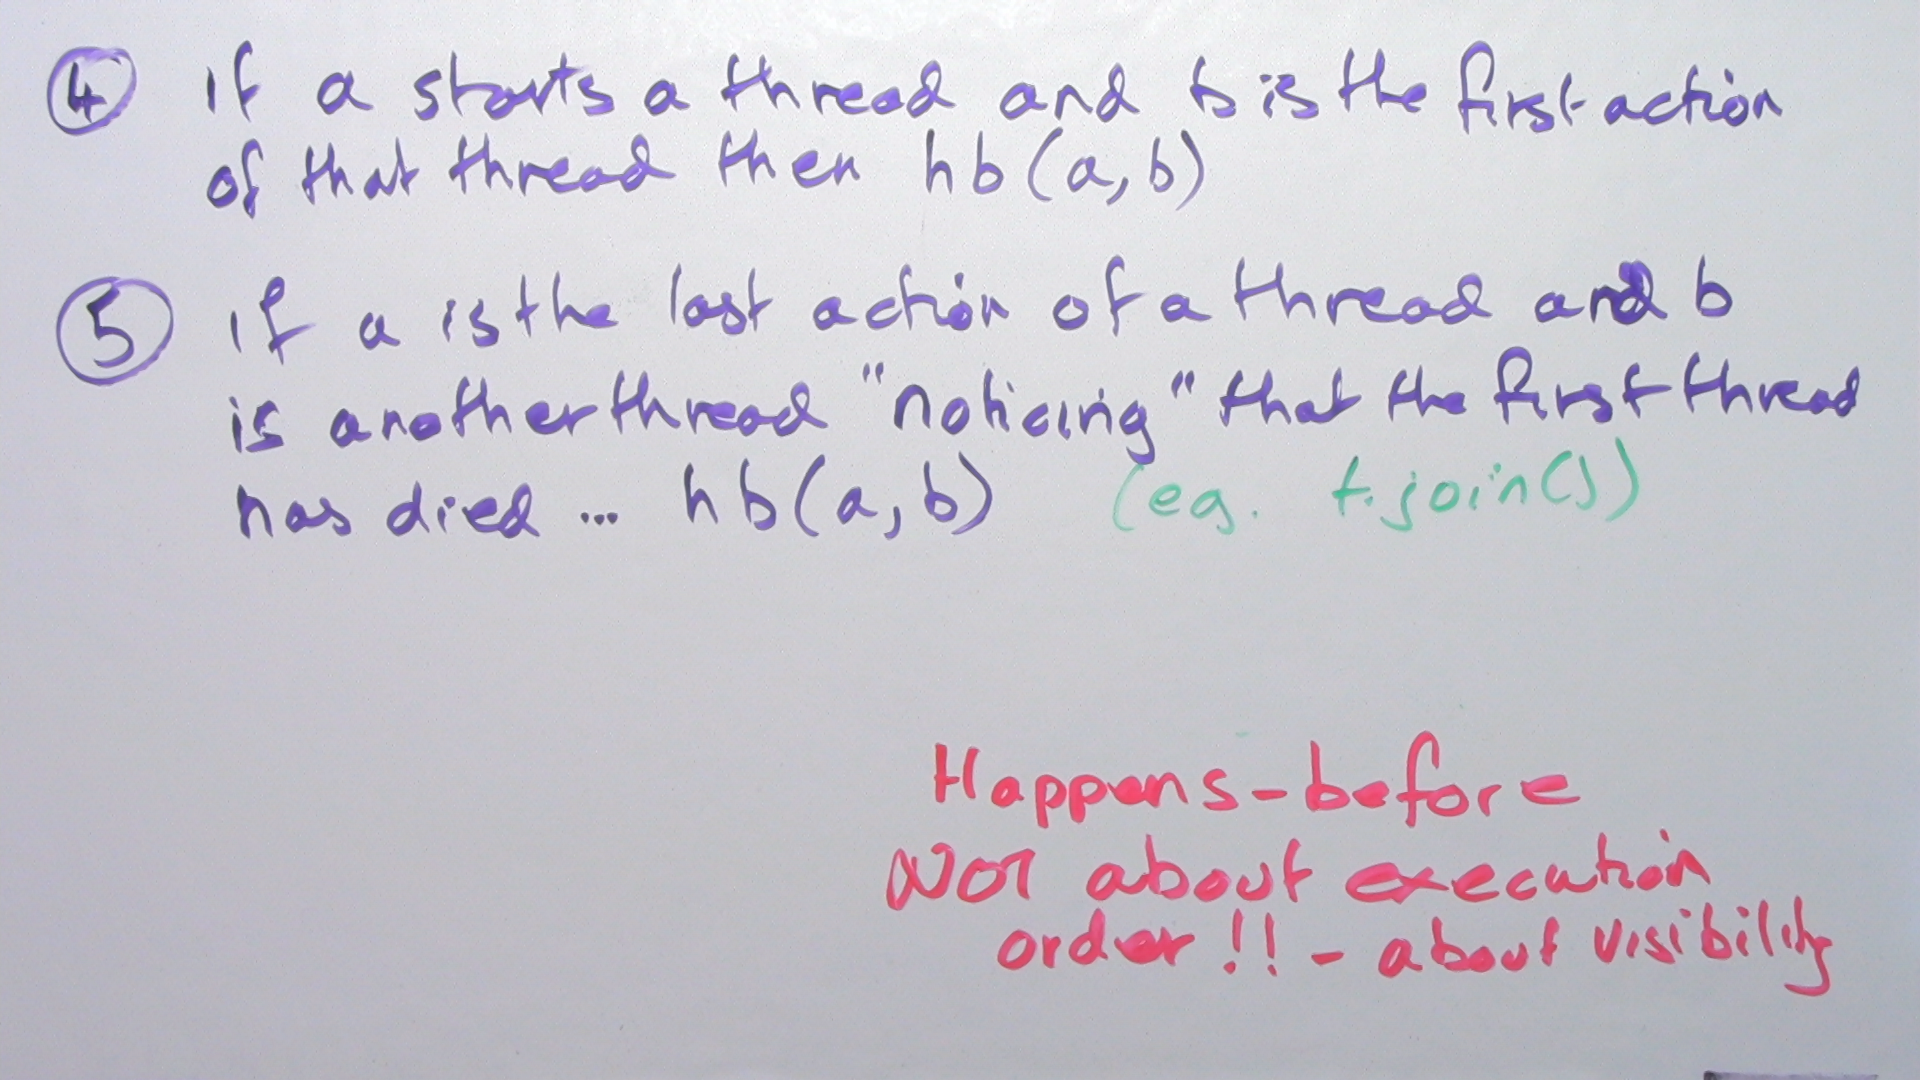 ④ If a starts a thread and b is the first action
of that thread then hb(a,b)
⑤ If a is the last action of a thread and b
is another thread "noticing" that the first thread
has died ... hb(a,b) (eg. t.join())
Happens-before
NOT about execution
order!! - about visibility